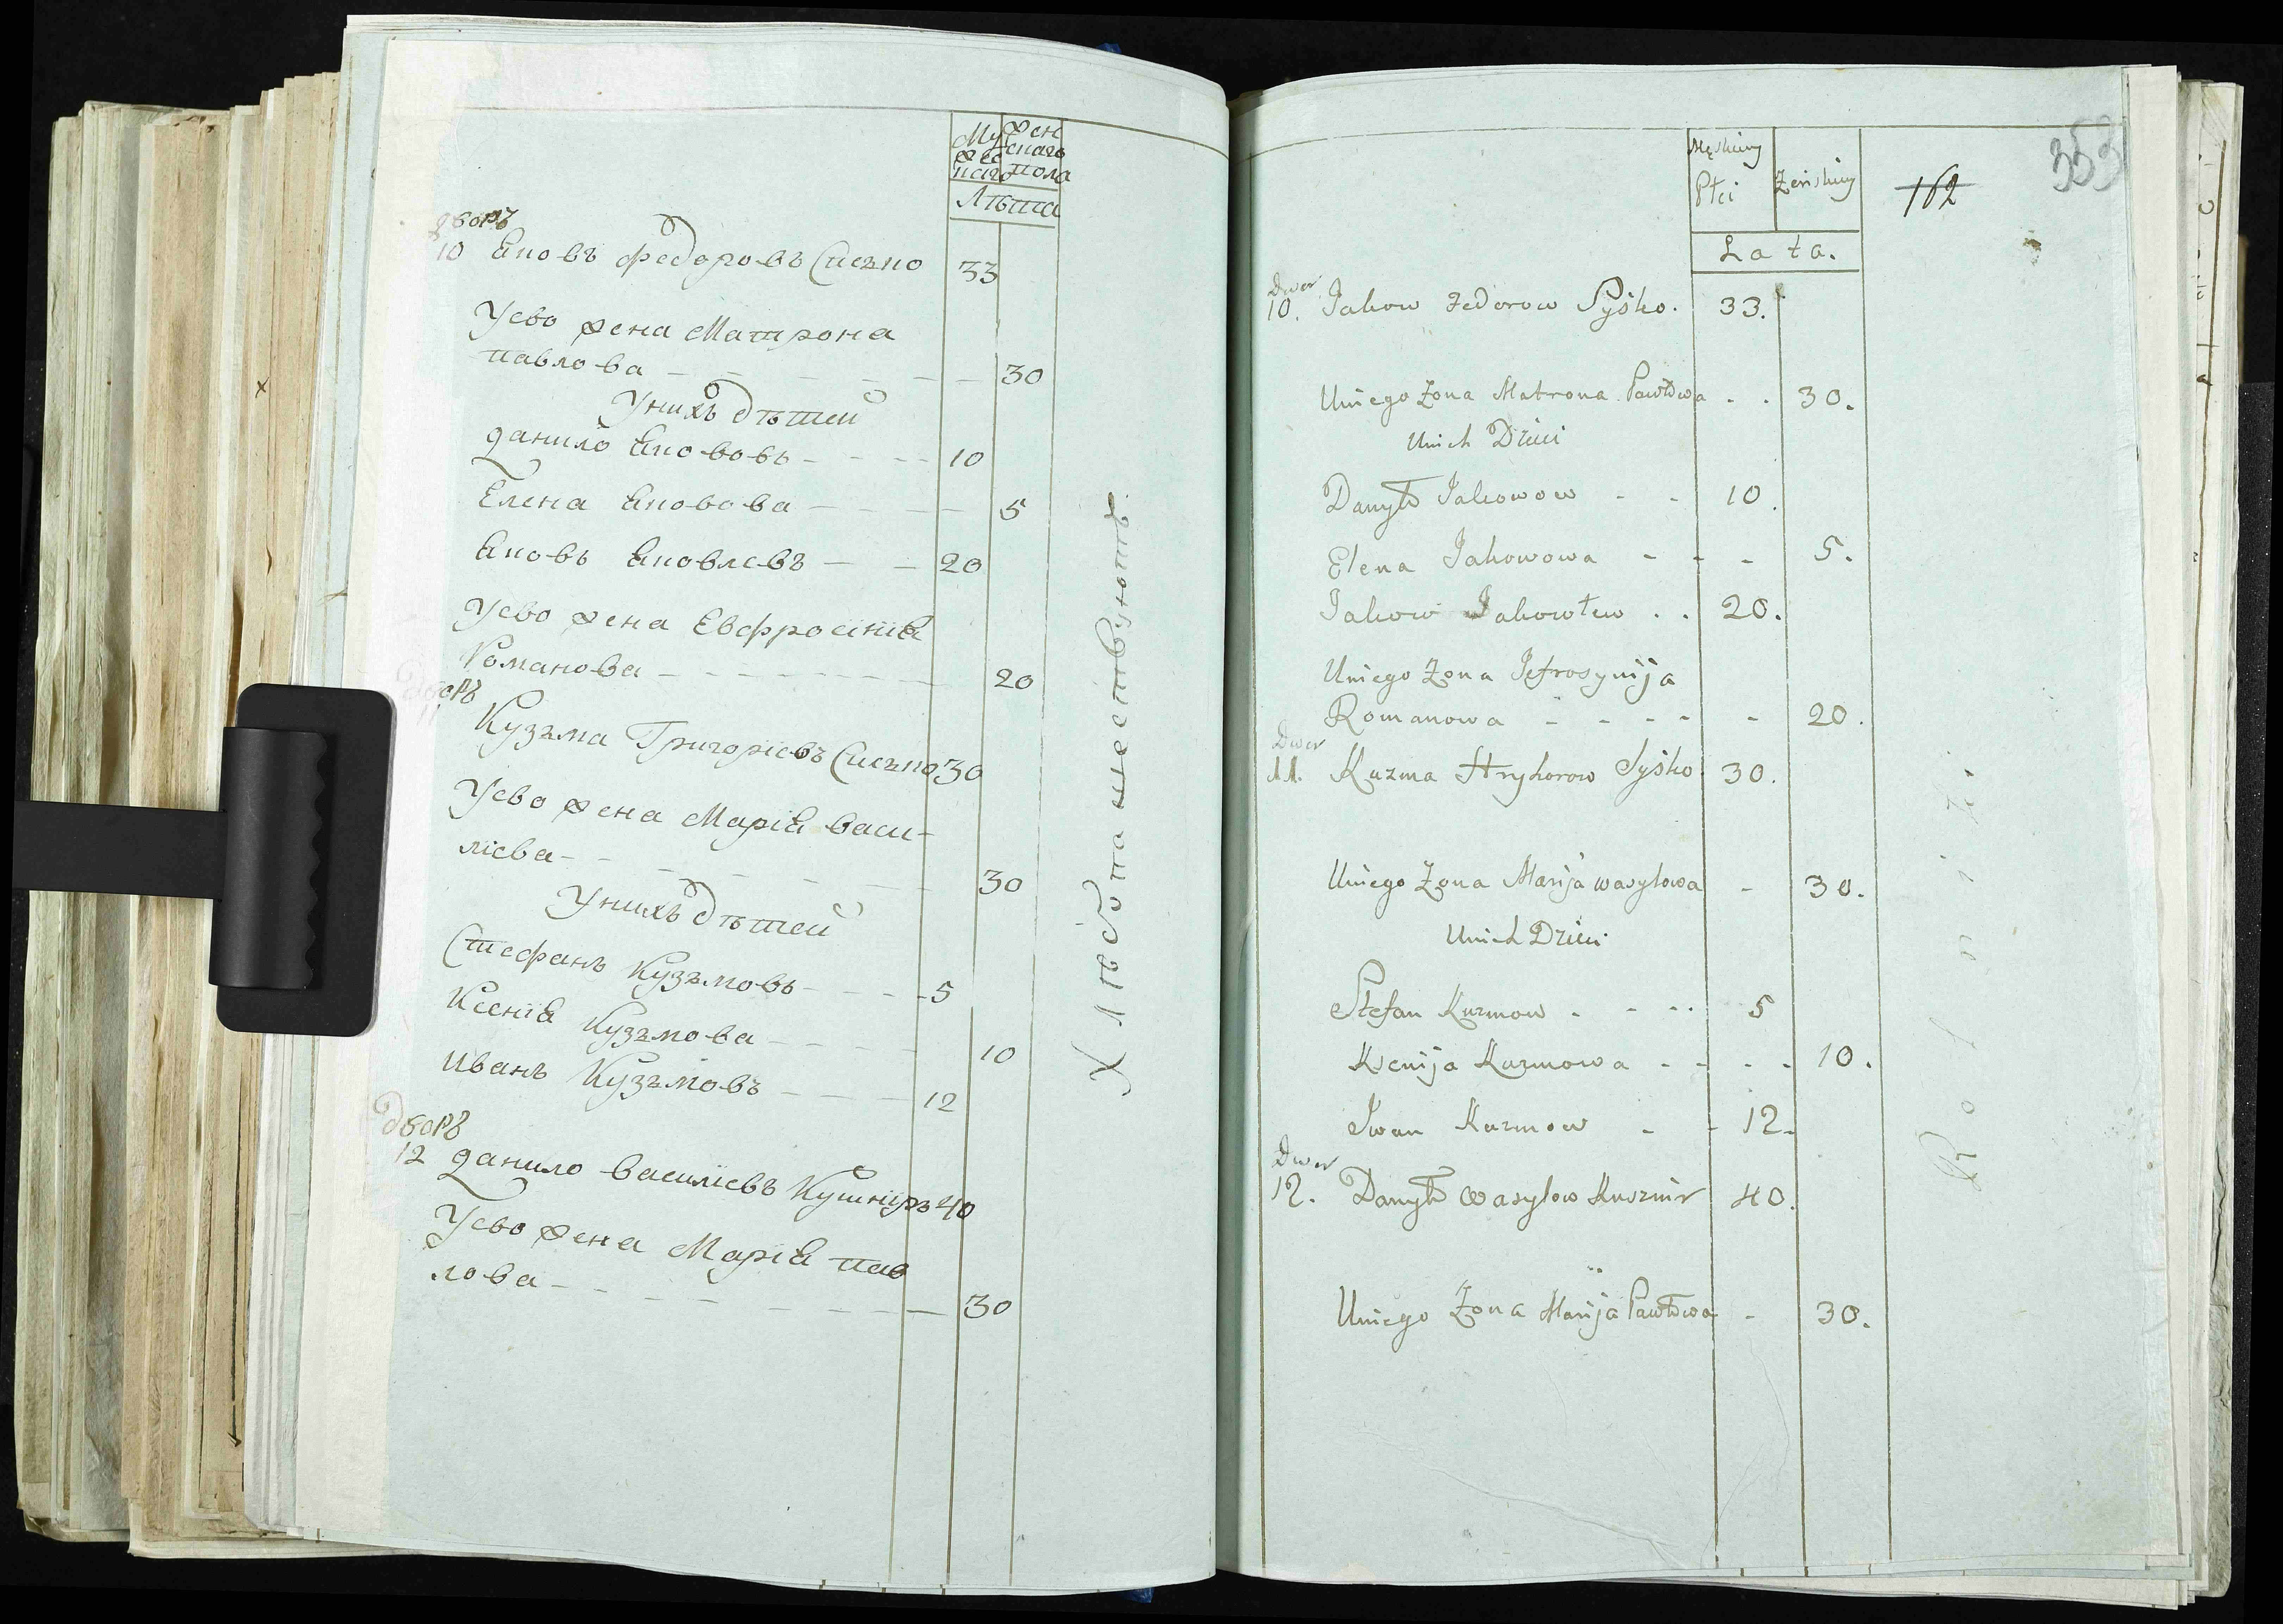 Мужескаго
Женскаго пола
Лѣта
дворъ
10 Яковъ Федоровъ Сисько 33
У его жена Матрона
павлова 30
У нихъ дѣтей
данило Якововъ 10
Елена Яковова 5
Яковъ Яковлевъ 20
У его жена Евфросинія
Романова 20
дворъ
11
Кузьма Григоріевъ Сисько 30
У его жена Марія Васи-
ліева 30
У нихъ дѣтей
Стефанъ Кузьмовъ 5
Ксенія Кузьмова 10
Иванъ Кузьмовъ 12
Дворъ
12 данило Василіевъ Кушніръ 40
У его жена Марія пав
лова 30
Хлѣбопашествуютъ.
353
162
Męskiey Żeńskiey
Płci
Lata.
Dwor
10. Jakow Fedorow Syśko. 33.
Uniego Żona Matrona Pawłowa 30.
Unich Dzieci
Danyło Jakowow 10.
Elena Jakowowa 5.
Jakow Jakowlew 20.
Uniego Żona Jefrosynija
Romanowa 20.
Dwor
11. Kuzma Hryhorow Syśko 30.
Uniego Żona Marija wasylowa 30.
Unich Dzieci
Stefan Kuzmow 5
Ksenija Kuzmowa 10.
Iwan Kuzmow 12.
Dwor
12. Danyło Wasylow Kusznir 40.
Uniego Żona Marija Pawłowa 30.
Rolnizi.